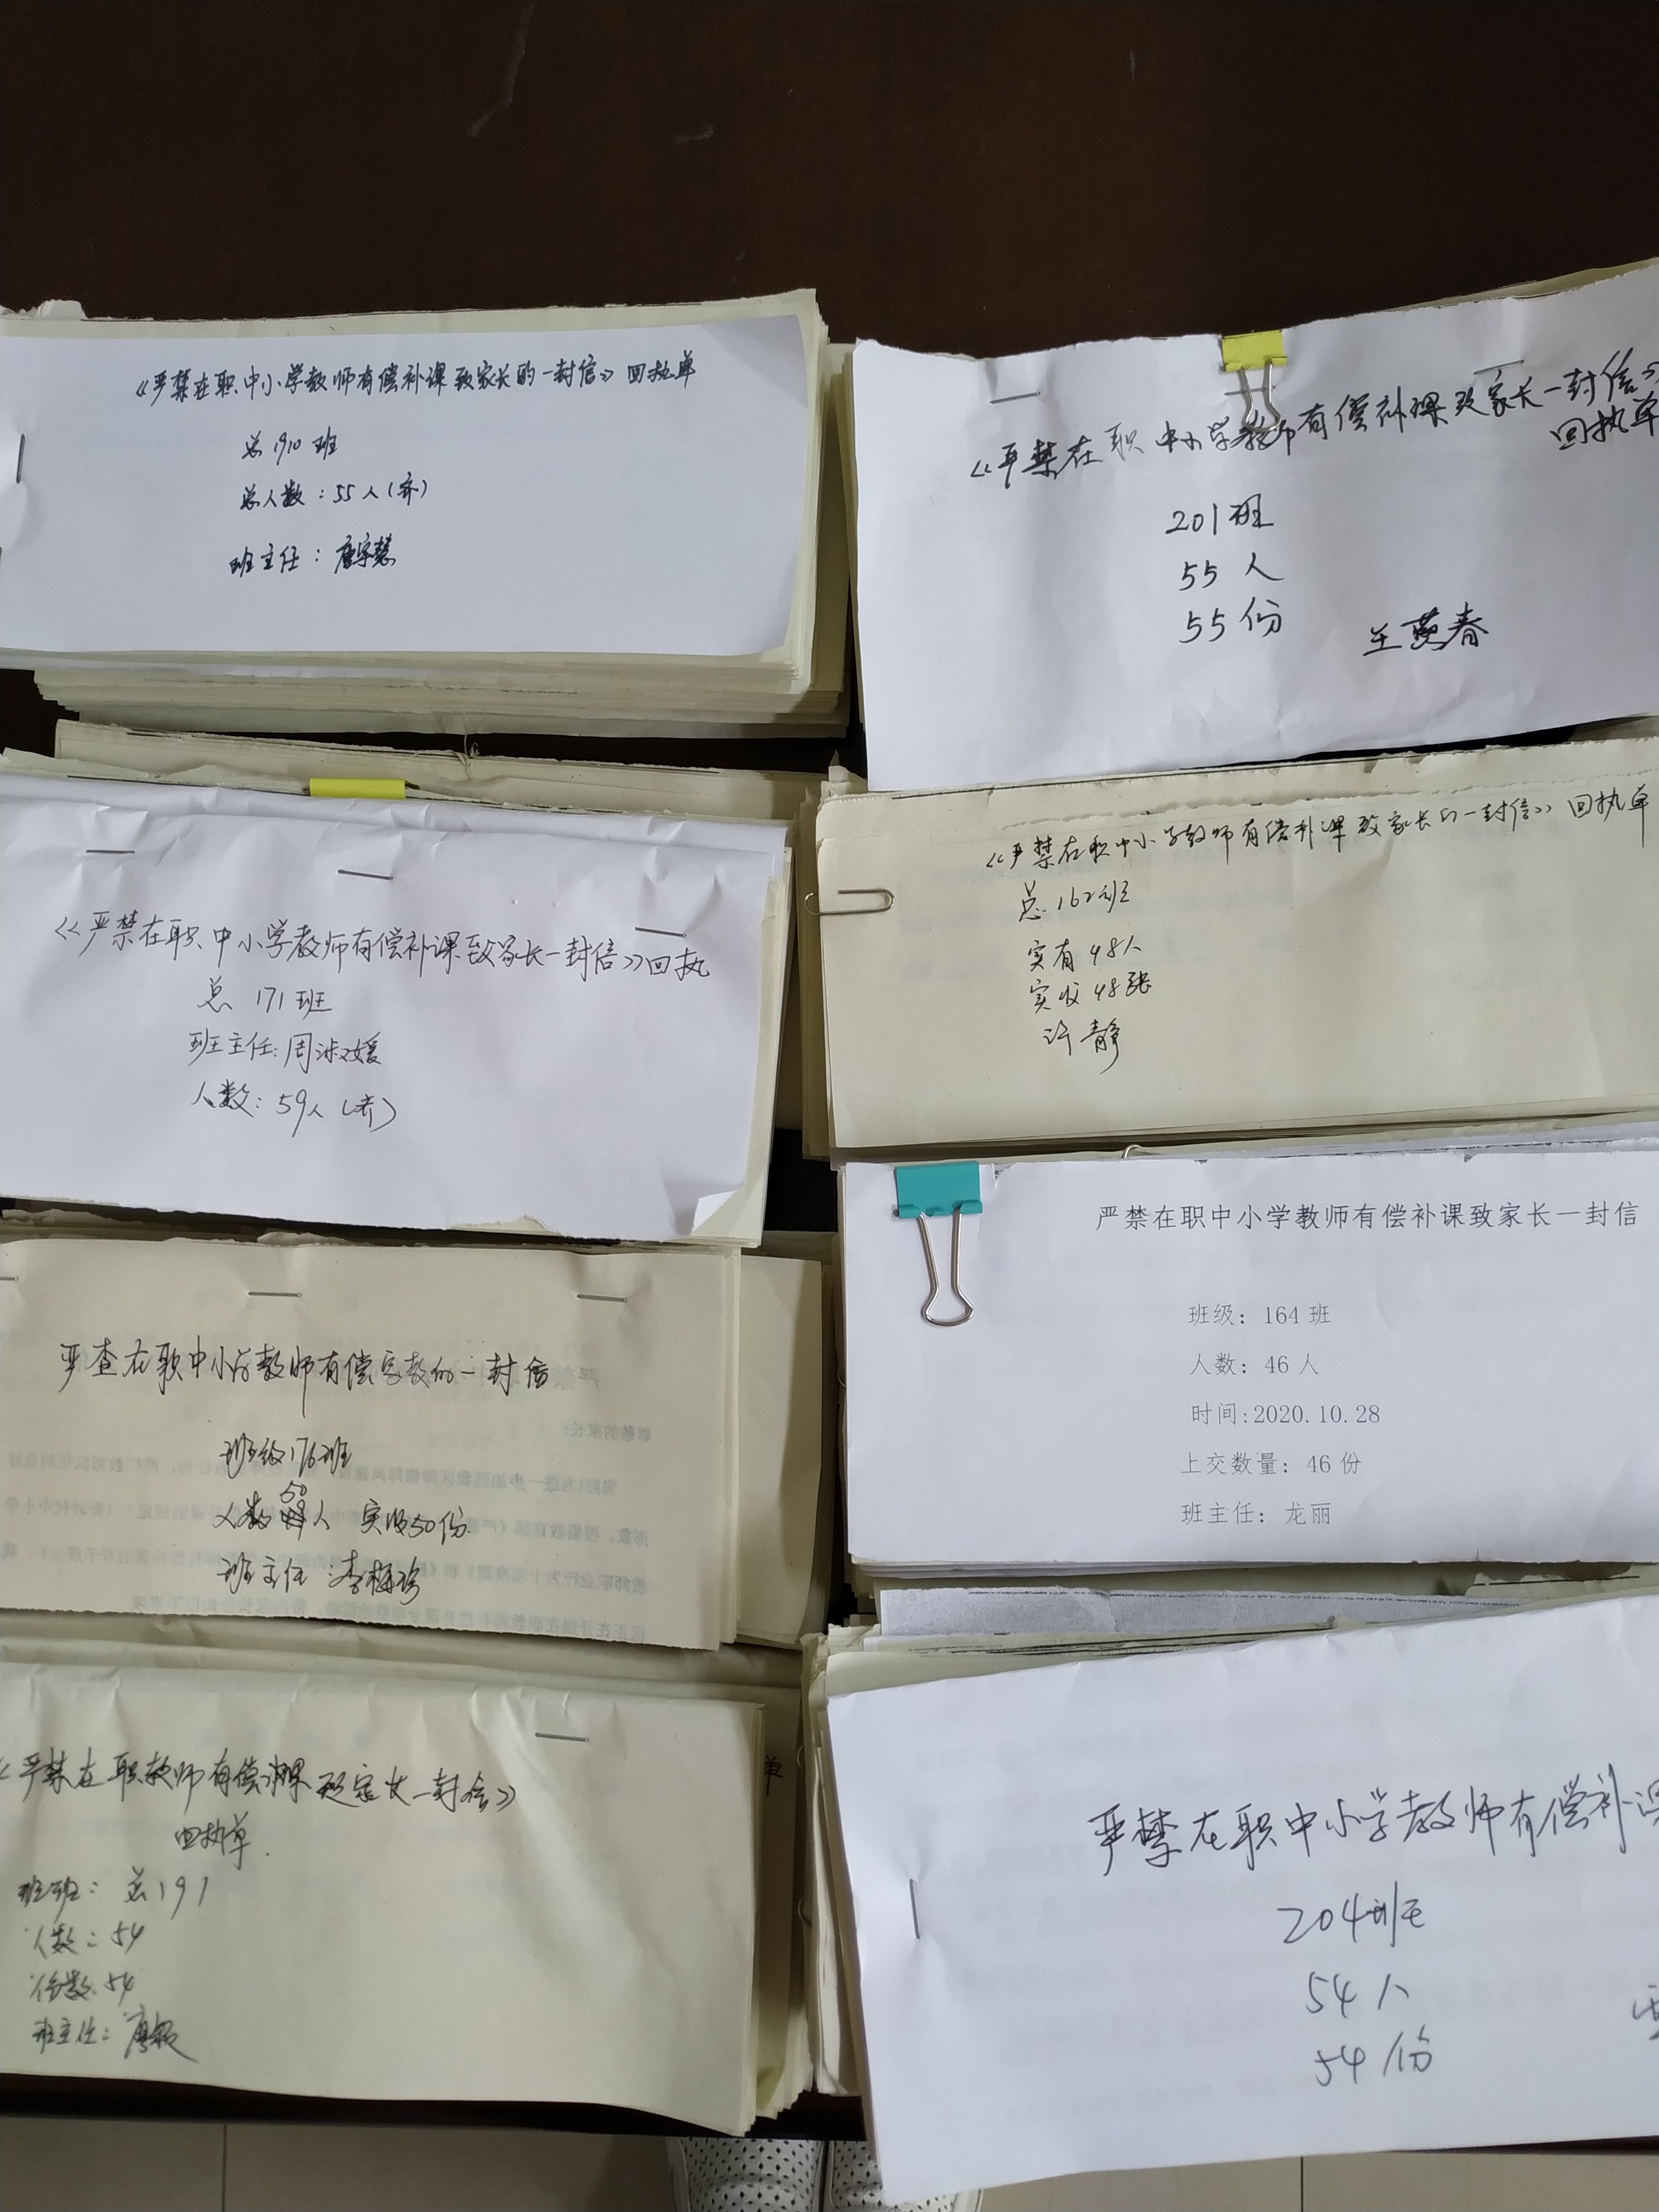 《严禁在职中小学教师有偿补课致家长的一封信》回执单
总1910班
总人数：55人（齐）
班主任：唐宇慧
《严禁在职中小学教师有偿补课致家长一封信》
回执单
201班
55人
55份
王英春
《严禁在职中小学教师有偿补课致家长一封信》回执
总171班
班主任：周淑媛
人数：59人（齐）
《严禁在职中小学教师有偿补课致家长的一封信》回执单
总162班
实有48人
实收48张
许静
严查在职中小学教师有偿家教的一封信
班级176班
人数50人 实收50份
班主任：李梅珍
严禁在职中小学教师有偿补课致家长一封信
班级：164班
人数：46人
时间:2020.10.28
上交数量：46份
班主任：龙丽
《严禁在职教师有偿补课致家长一封信》
回执单
班班：总191
人数：54
份数：54
班主任：唐
单
严禁在职中小学教师有偿补课
204班
54人
54份